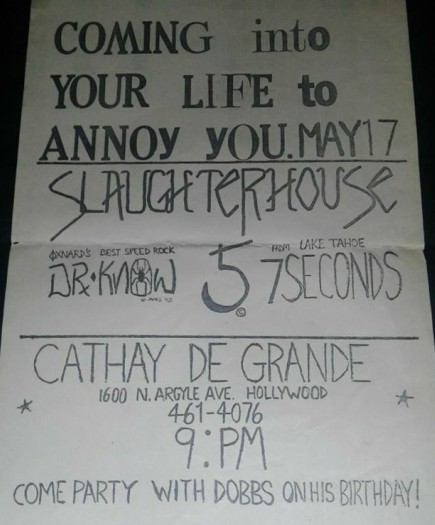 COMING into
YOUR LIFE to
ANNOy yOU. MAY 17
SLAUGHTERHOUSE
5
OXNARD'S BEST SPEED ROCK
DR. KNOW
FROM LAKE TAHOE
7SECONDS
CATHAY DE GRANDE
1600 N. ARGYLE AVE. HOLLYWOOD
461-4076
9:PM
COME PARTY WITH DOBBS ON HIS BIRTHDAY!